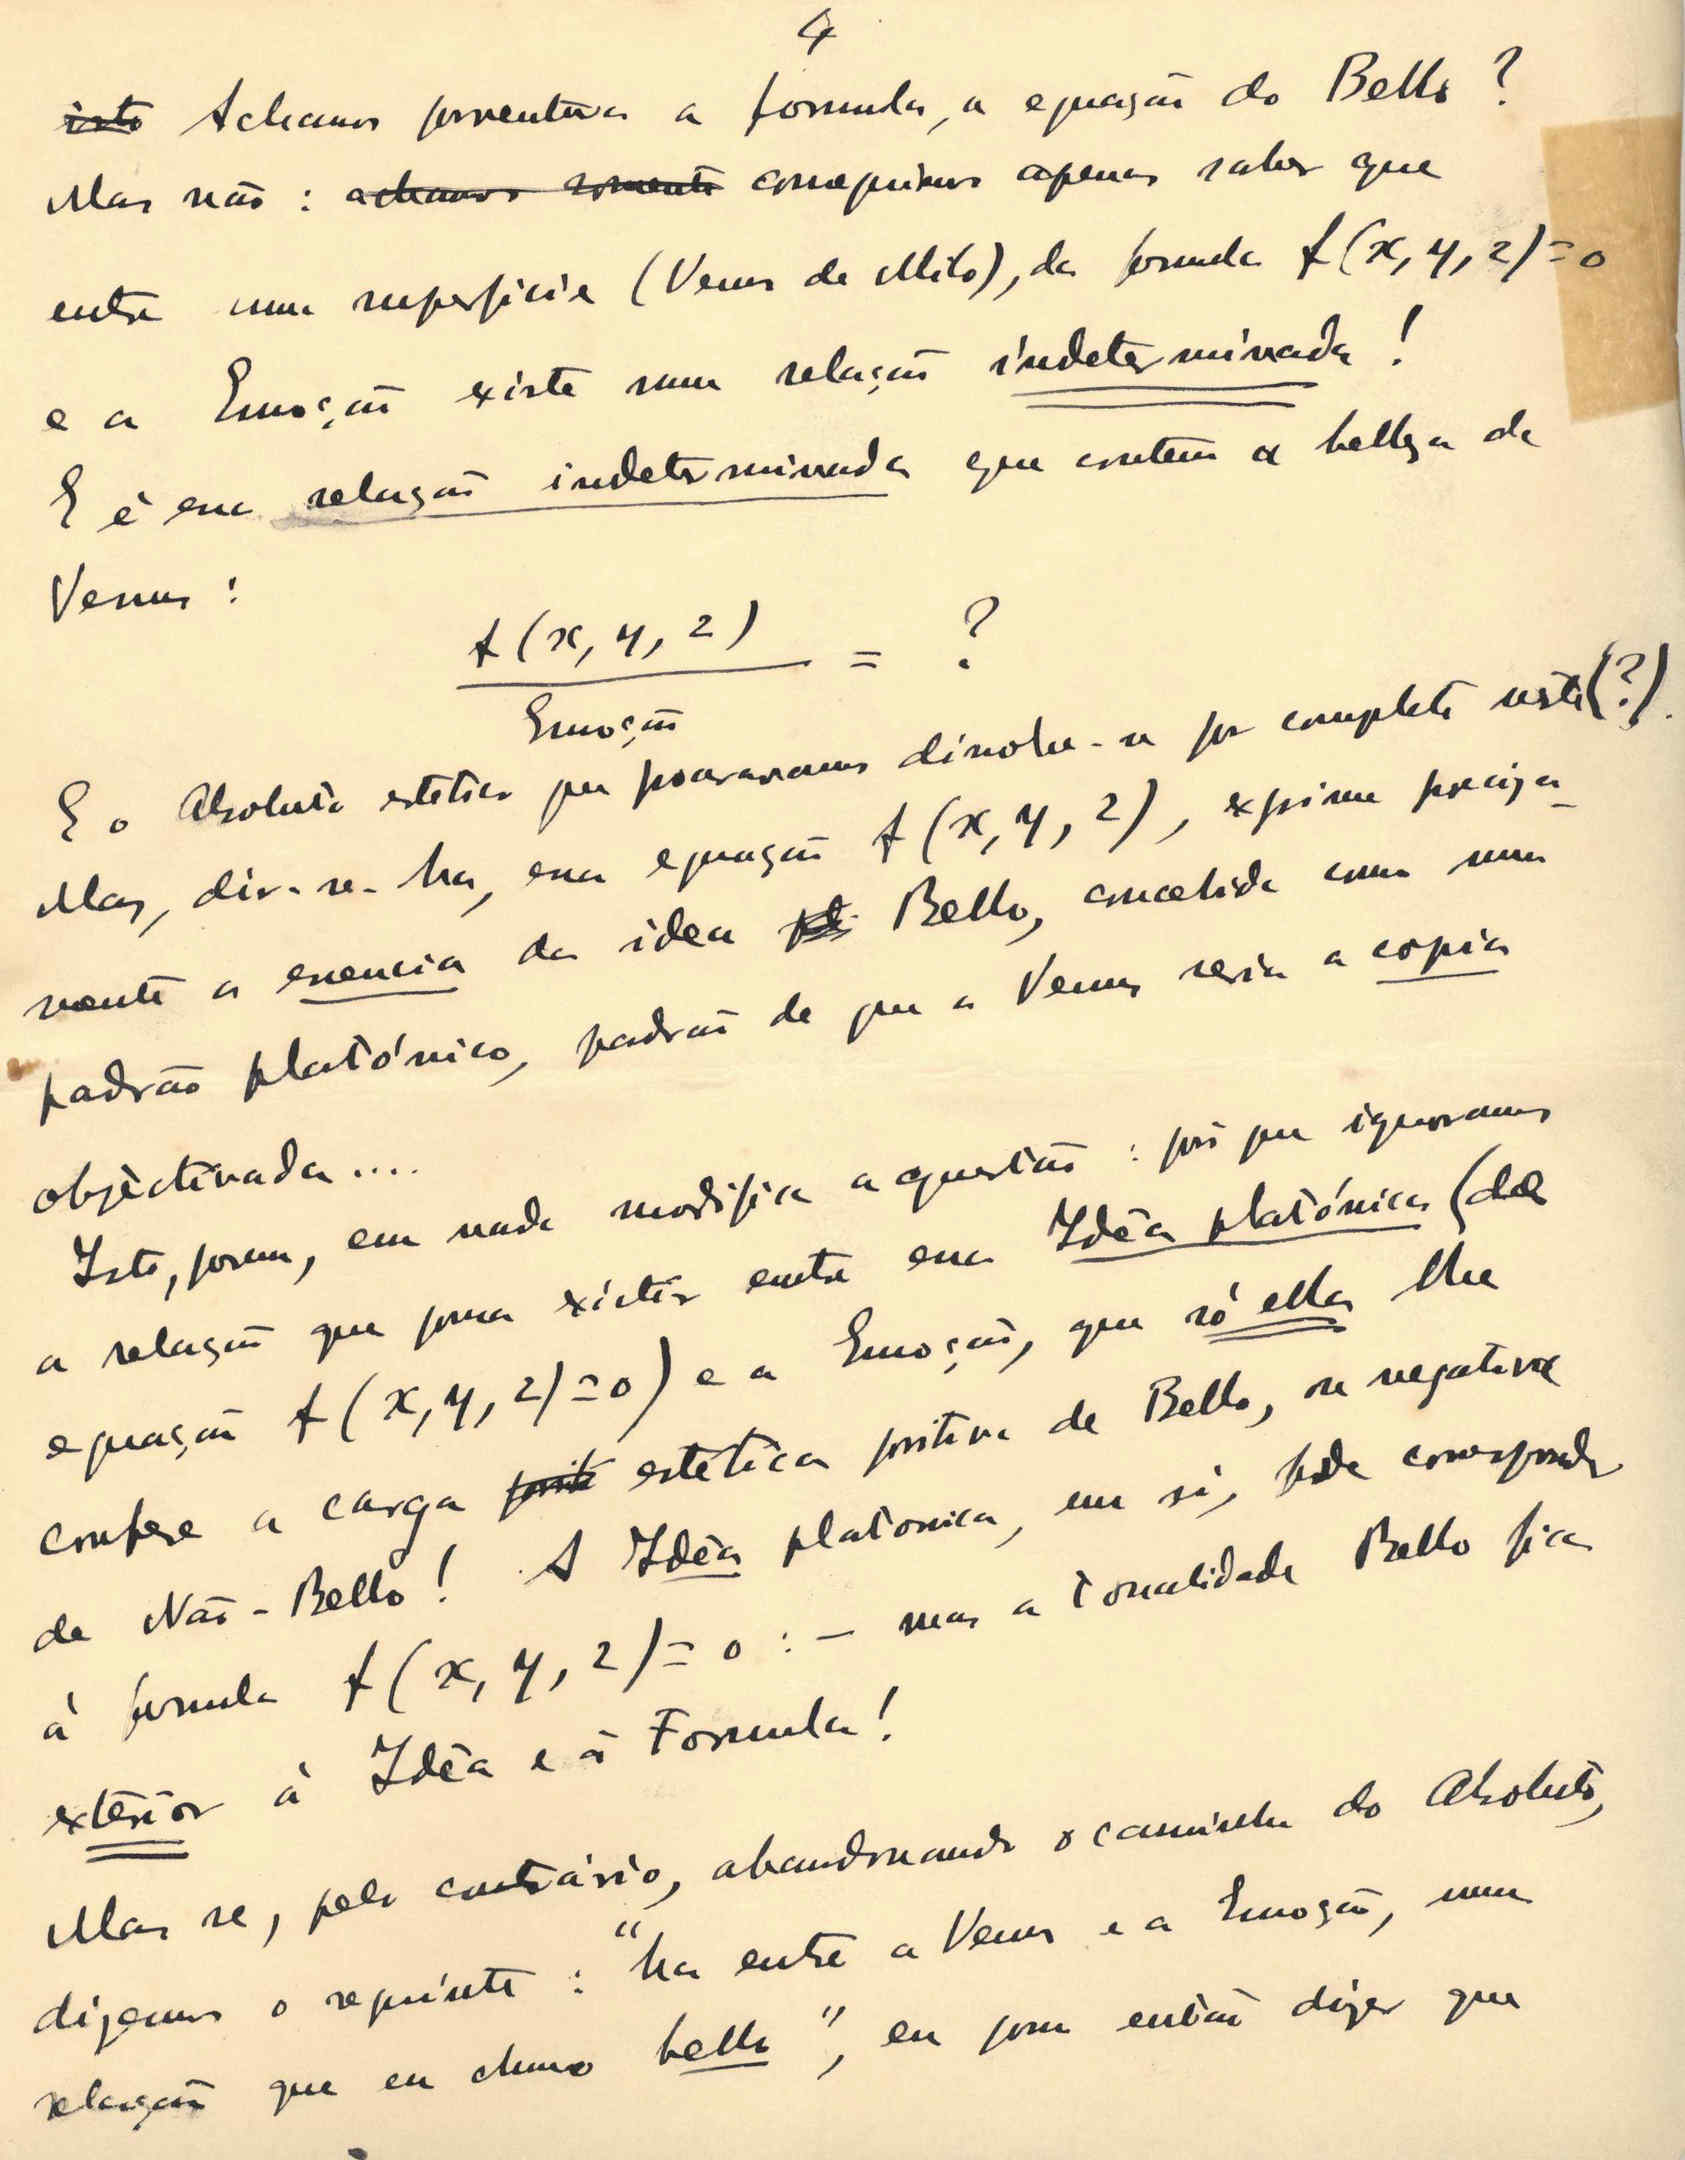 4
isto Achamos porventura a formula, a equação do Bello ?
Mas não : achamos somente conseguimos apenas saber que
entre uma superficie (Venus de Milo), da formula f(x, y, z)=0
e a Emoção existe uma relação indeterminada !
E é essa relação indeterminada que contem a belleza da
Venus :
f(x, y, z) / Emoção = ?
E o Absoluto estetico que procuravamos dissolve-se por completo neste (?).
Mas, dir-se-ha, essa equação f(x, y, z), exprime precisa-
mente a essencia da idea de Bello, concebida como um
padrão platónico, padrão de que a Venus seria a copia
objectivada ....
Isto, porem, em nada modifica a questão : pois que ignoramos
a relação que possa existir entre essa Idêa platónica (da
equação f(x, y, z)=0) e a Emoção, que só ella lhe
confere a carga estetica positiva de Bello, ou negativa
de Não-Bello ! A Idêa platonica, em si, pode corresponder
à formula f(x, y, z)=0 : – mas a tonalidade Bello fica
exterior à Idêa e à Formula !
Mas se, pelo contrário, abandonando o caminho do Absoluto,
dizemos o seguinte : "ha entre a Venus e a Emoção, uma
relação que eu chamo bello", eu posso então dizer que